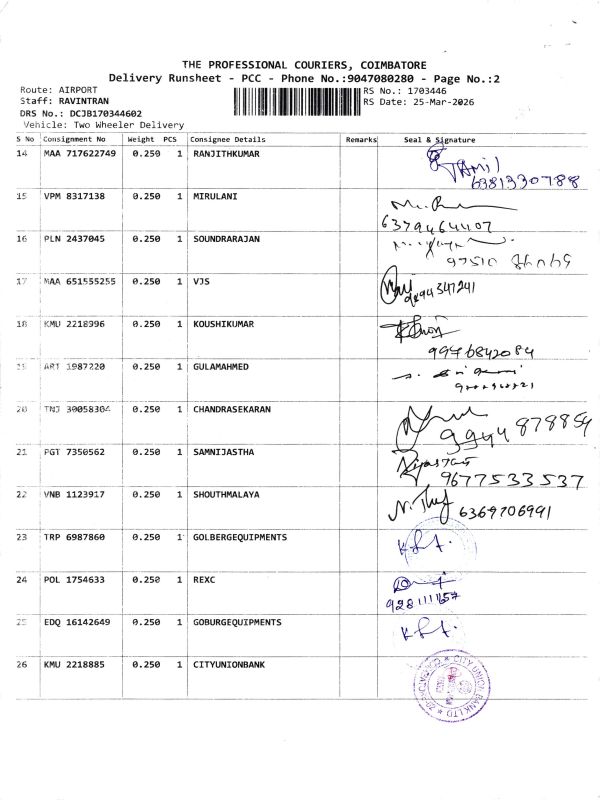 THE PROFESSIONAL COURIERS, COIMBATORE
Delivery Runsheet - PCC - Phone No.:9047080280 - Page No.:2
Route: AIRPORT
Staff: RAVINTRAN
DRS No.: DCJB170344602
Vehicle: Two Wheeler Delivery
RS No.: 1703446
RS Date: 25-Mar-2026
S No Consignment No Weight PCS Consignee Details Remarks Seal & Signature
14 MAA 717622749 0.250 1 RANJITHKUMAR
Tamil
6381330788
15 VPM 8317138 0.250 1 MIRULANI
6379464407
16 PLN 2437045 0.250 1 SOUNDRARAJAN
17 MAA 651555255 0.250 1 VJS
9894347241
18 KMU 2218996 0.250 1 KOUSHIKUMAR
9976842084
19 ART 1987220 0.250 1 GULAMAHMED
20 TNJ 39058304 0.250 1 CHANDRASEKARAN
9944878854
21 PGT 7350562 0.250 1 SAMNIJASTHA
9677533537
22 VNB 1123917 0.250 1 SHOUTHMALAYA
6369706991
23 TRP 6987860 0.250 1 GOLBERGEQUIPMENTS
24 POL 1754633 0.250 1 REXC
25 EDQ 16142649 0.250 1 GOBURGEQUIPMENTS
26 KMU 2218885 0.250 1 CITYUNIONBANK
CITY UNION BANK LTD